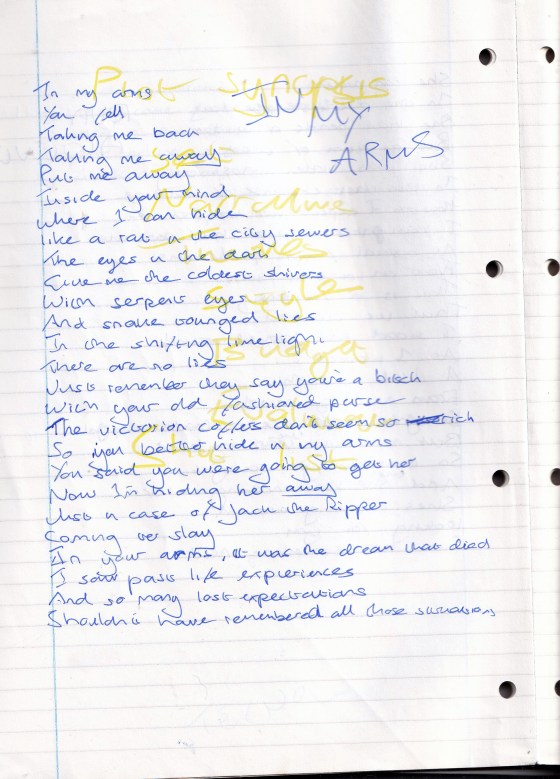 IN MY
ARMS
In my arms
You fell
Taking me back
Taking me away
Put me away
Inside your mind
Where I can hide
like a rat in the city sewers
The eyes in the dark
Give me the coldest shivers
With serpent eyes
And snake tounged lies
In the shifting limelight
There are no lies
Just remember they say you're a bitch
With your old fashioned purse
The victorian coffers don't seem so rich
So you better hide in my arms
You said you were going to get her
Now I'm hiding her away
Just in case of Jack the Ripper
Coming to slay
In your arms, it was the dream that died
I saw past life experiences
And so many lost expectations
Shouldn't have remembered all those situations
Plot synopsis
Narrative
Themes
Style
Budget
Shot list